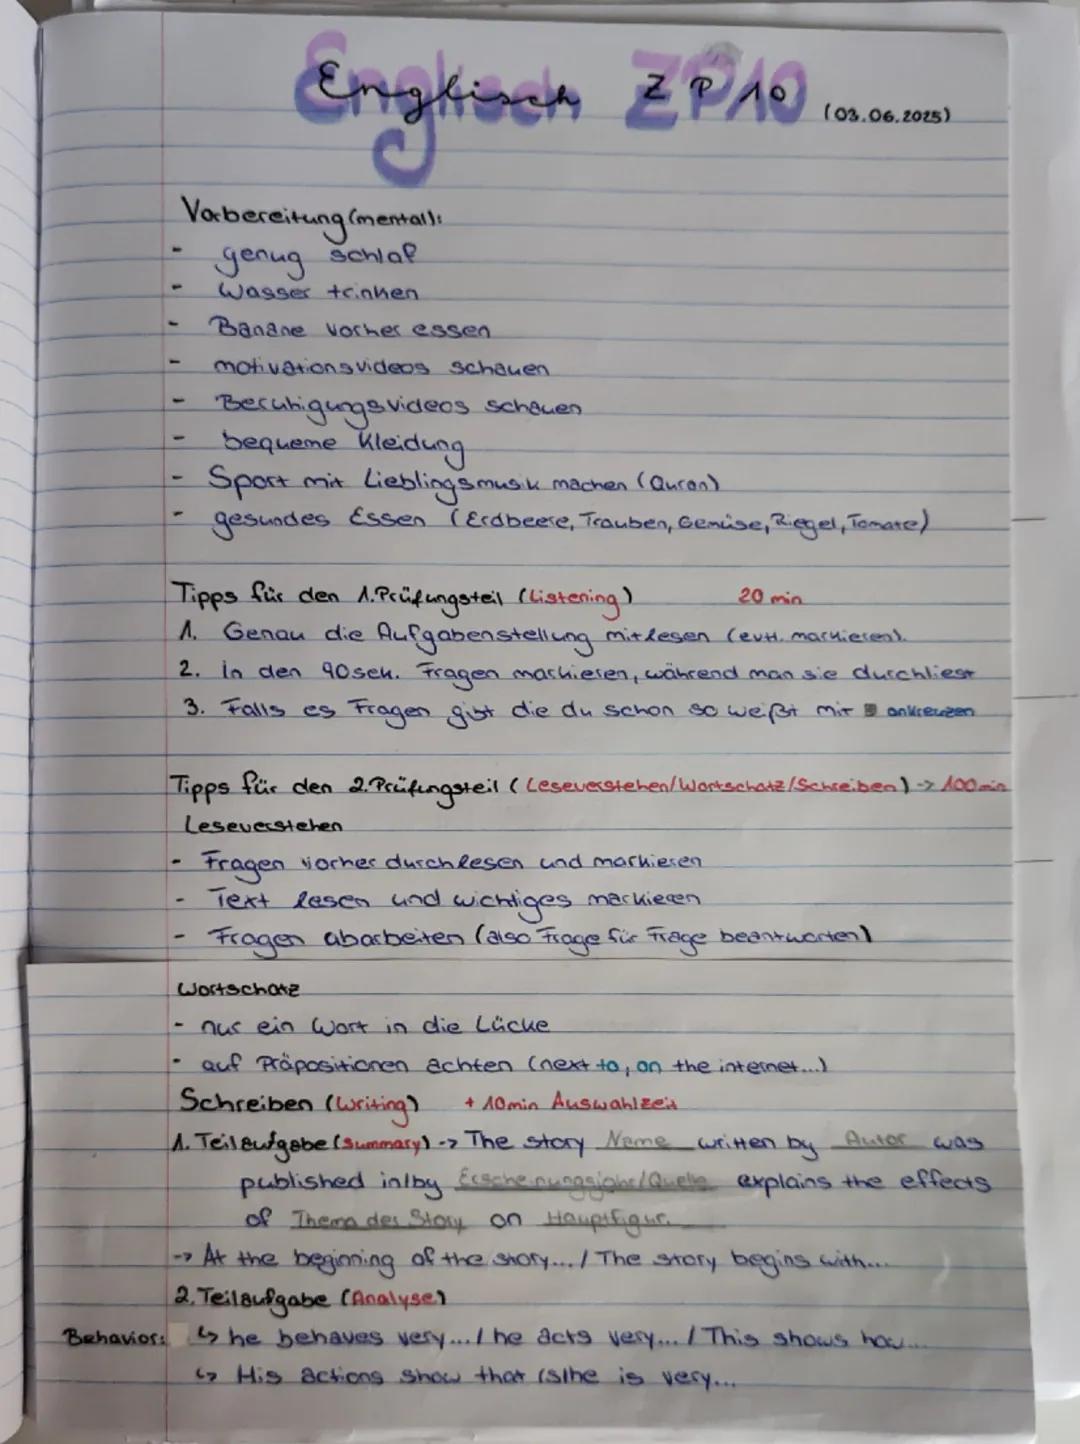 Englisch ZP10 (03.06.2025)
Vorbereitung (mental):
- genug schlaf
- Wasser trinken
- Banane vorher essen
- motivationsvideos schauen
- Beruhigungsvideos schauen
- bequeme Kleidung
- Sport mit Lieblingsmusik machen (Quran)
- gesundes Essen (Erdbeere, Trauben, Gemüse, Riegel, Tomate)
Tipps für den 1. Prüfungsteil (Listening) 20 min
1. Genau die Aufgabenstellung mitlesen (evtl. markieren).
2. in den 90sek. Fragen markieren, während man sie durchliest
3. Falls es Fragen gibt die du schon so weißt mit ankreuzen
Tipps für den 2. Prüfungsteil (Leseverstehen/Wortschatz/Schreiben) -> 100min
Leseverstehen
- Fragen vorher durchlesen und markieren
- Text lesen und wichtiges markieren
- Fragen abarbeiten (also Frage für Frage beantworten)
Wortschatz
- nur ein Wort in die Lücke
- auf Präpositionen achten (next to, on the internet...)
Schreiben (Writing) + 10min Auswahlzeit
1. Teilaufgabe (summary) -> The story Name written by Autor was
published in/by Erscheinungsjahr/Quelle explains the effects
of Thema der Story on Hauptfigur.
-> At the beginning of the story... / The story begins with...
2. Teilaufgabe (Analyse)
Behavior: ↳ he behaves very... / he acts very... / This shows how...
↳ His actions show that (s)he is very...